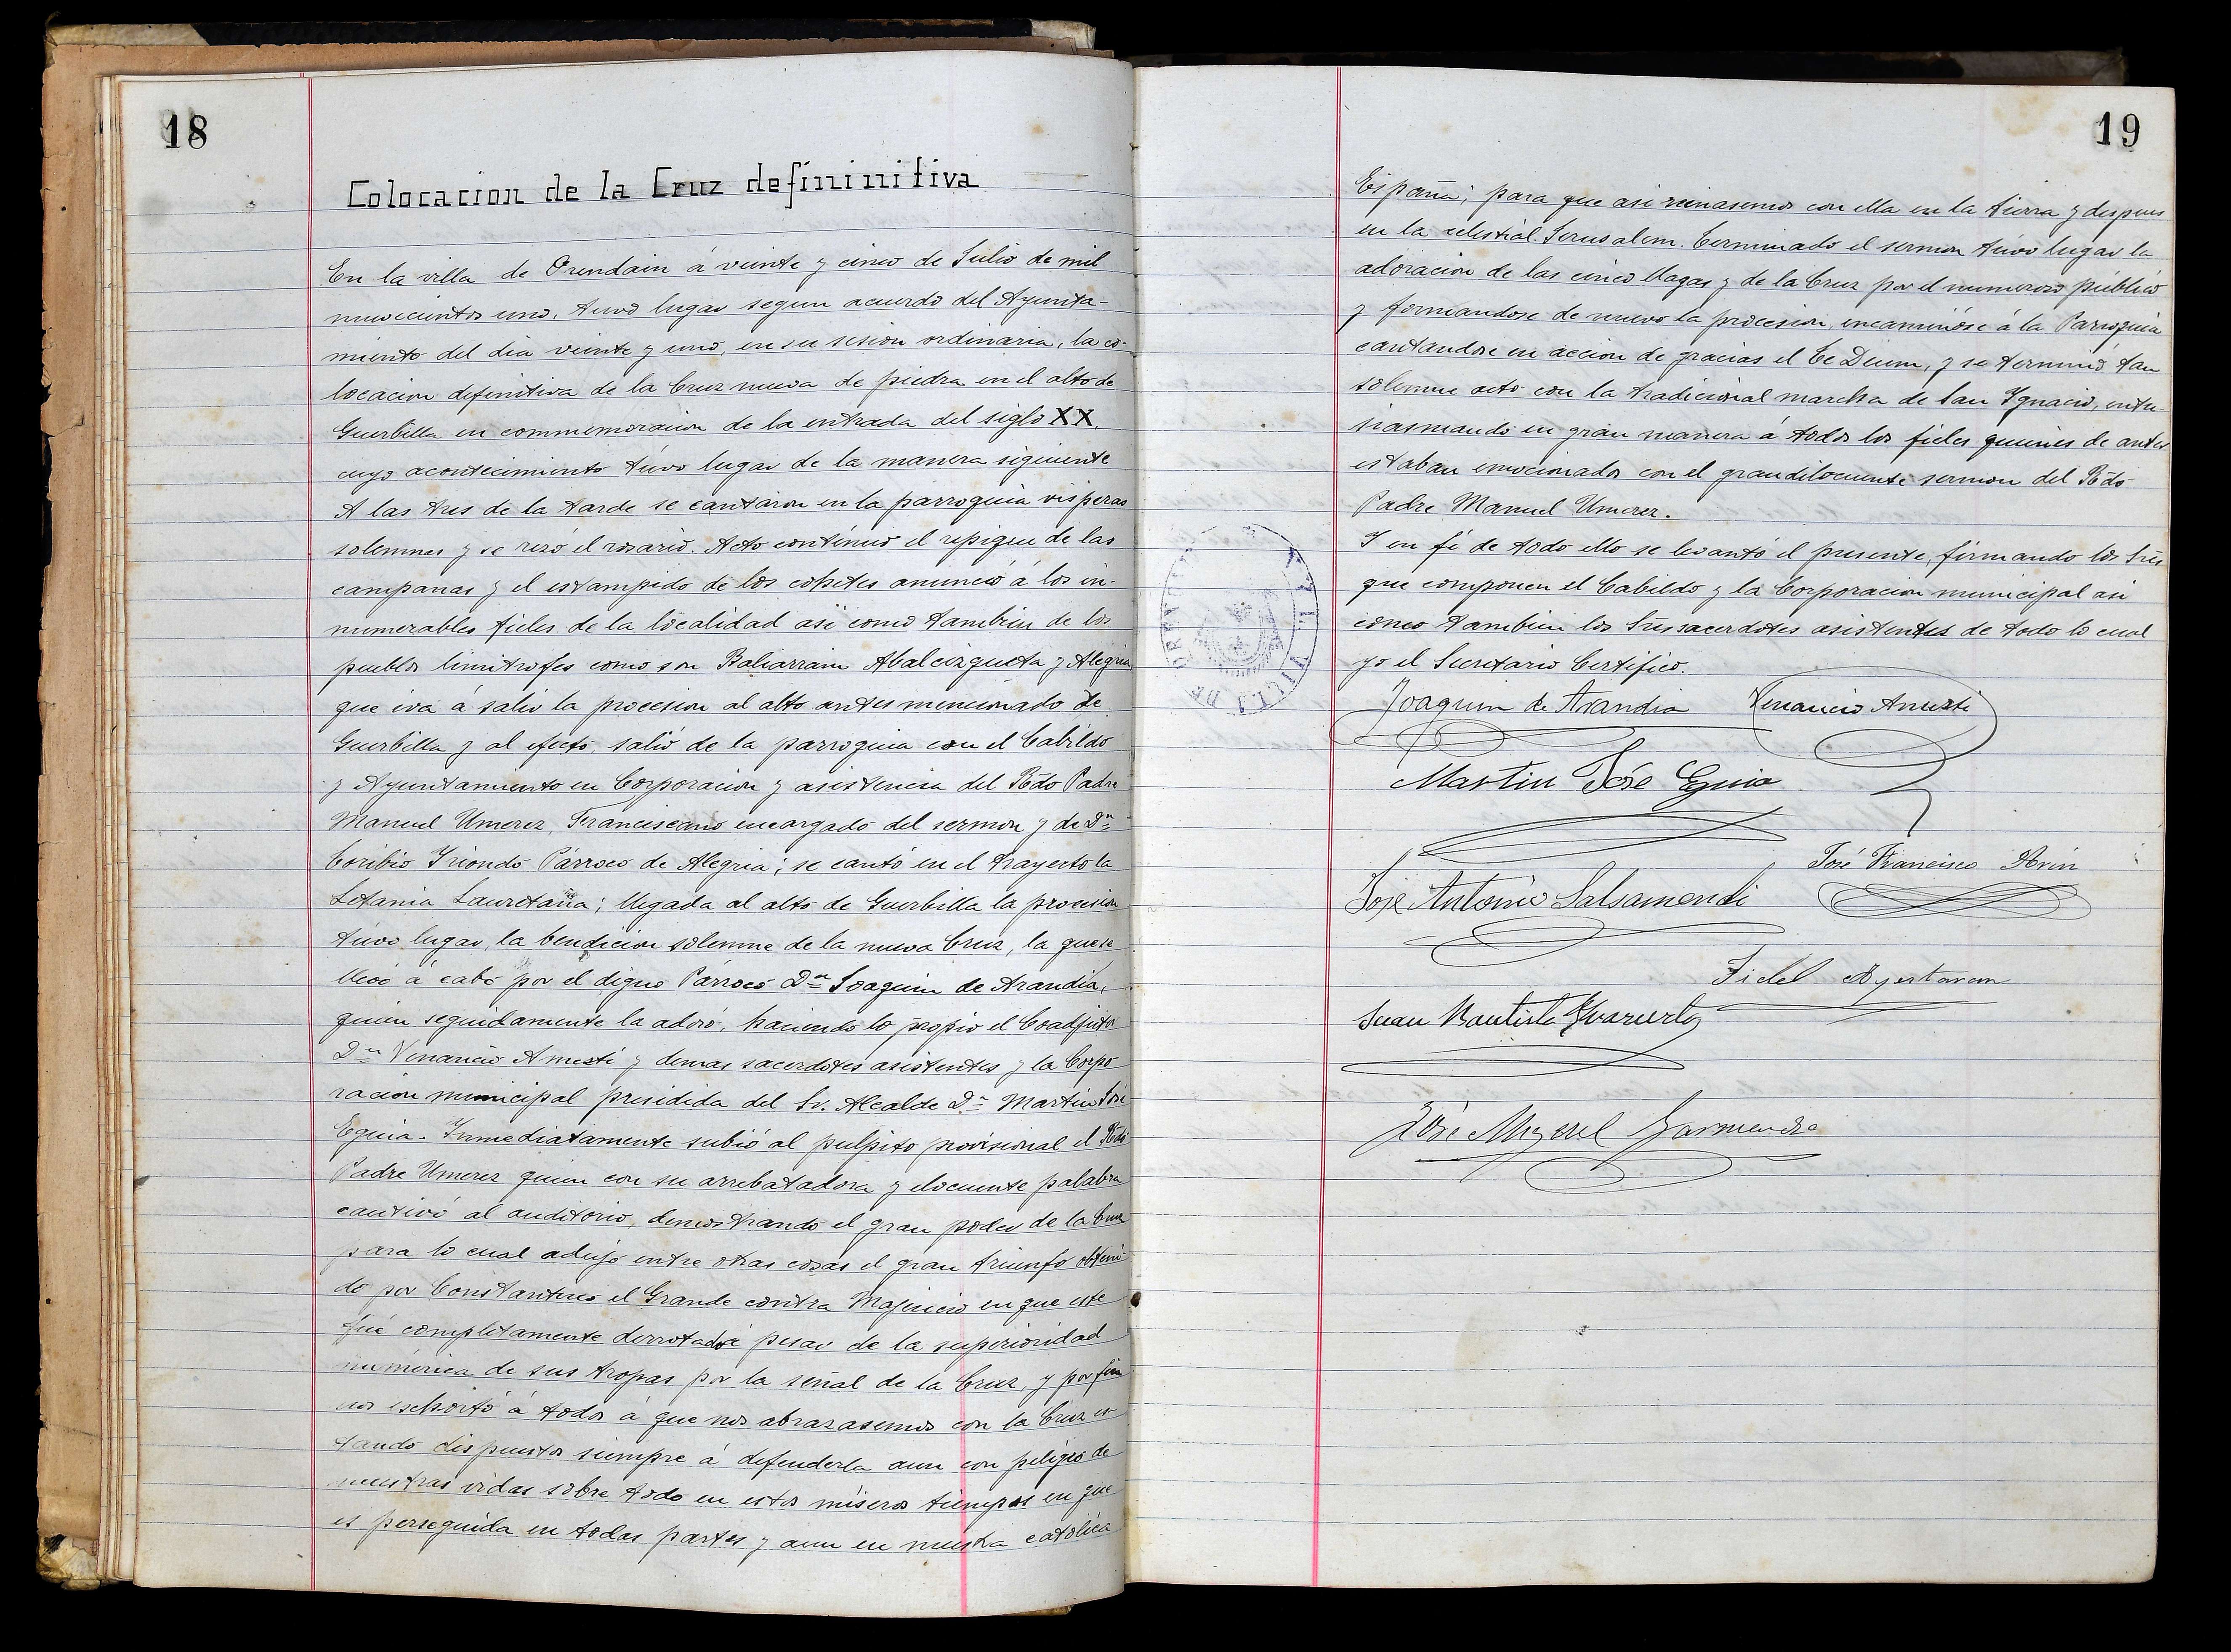 18
Colocacion de la Cruz defininitiva
En la villa de Orendain á veinte y cinco de Julio de mil
nuvecientos uno, tuvo lugar segun acuerdo del Ayunta-
miento del dia veinte y uno, en su sesion ordinaria, la co-
locacion definitiva de la Cruz nueva de piedra en el alto de
Guerbilla en commemoracion de la entrada del siglo XX,
cuyo acontecimiento túvo lugar de la manera siguiente
A las tres de la tarde se cantáron en la parroquia visperas
solemnes y se rezo el rosario. Acto contínuo el repique de las
campanas y el estampido de los cohetes anunció á los in-
numerables fieles de la localidad asi como tambien de los
pueblos limitrofes como son Baliarrain Abalcizqueta y Alegria
que iva á salir la procesion al alto antes mencionado de
Guerbilla y al efecto, salió de la parroquia con el Cabildo
y Ayuntamiento en Corporacion y asistencia del Rdo Padre
Manuel Umerez, Franciscano encargado del sermon y de Dn
Toribio Iriondo Párroco de Alegria; se cantó en el trayecto la
Letania Lauretana; llegada al alto de Guerbilla la procesion
túvo lugar, la bendicion solemne de la nueva Cruz, la que se
llevó á cabo por el digno Párroco Dn Joaquin de Arandia,
quien seguidamente la adoró, haciendo lo propio el Coadjutor
Dn Venancio Amezti y demas sacerdotes asistentes y la Corpo
racion municipal presidida del Sr. Alcalde Dn Martin José
Eguia. Inmediatamente subió al pulpito provisional el Rdo
Padre Umerez quien con su arrebatadora y elocuente palabra
cautivó al auditorio, demostrando el gran poder de la Cruz
para lo cual adujo entre otras cosas el gran triunfo obteni-
do por Constantino el Grande contra Majencio en que este
fué completamente derrotado á pesar de la superioridad
numérica de sus tropas por la señal de la Cruz, y por fin
nos eschortó á todos á que nos abrazasemos con la Cruz es
tando dispuestos siempre á defenderla aun con peligro de
nuestras vidas sobre todo en estos míseros tiempos en que
es perseguida en todas partes y aun en nuestra católica
19
España; para que asi reinasemos con ella en la tierra y despues
en la celestial Jerusalem. Terminado el sermon túvo lugar la
adoracion de las cinco llagas y de la Cruz por el numeroso público
y formandose de nuevo la procesion, encaminóse á la Parroquia
cantandose en accion de gracias el Te Deum, y se terminó tan
solemne acto con la tradicional marcha de San Ignacio, entu-
siasmando en gran manera á todos los fieles quienes de antes
estaban emocionados con el grandilocuente sermon del Rdo
Padre Manuel Umerez.
I en fé de todo ello se levantó el presente, firmando los Sres
que componen el Cabildo y la Corporacion municipal asi
cómo tambien los Sres sacerdotes asistentes de todo lo cual
yo el Secretario Certifico.
Joaquin de Arandia Venancio Amezti
Martin José Eguia
José Francisco Arin
José Antonio Salsamendi
Fidel
Juan Bautista
José Miguel Garmendia
VILLA DE